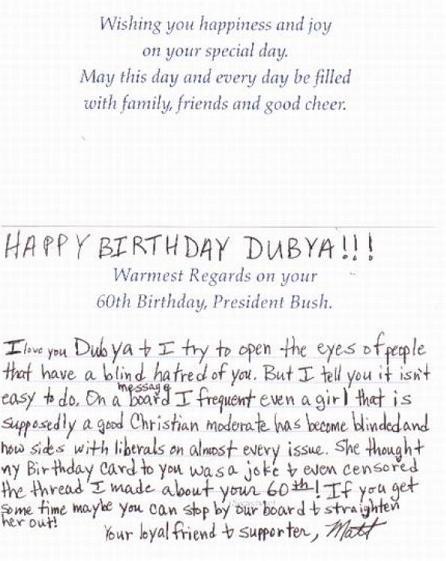 Wishing you happiness and joy
on your special day.
May this day and every day be filled
with family, friends and good cheer.
HAPPY BIRTHDAY DUBYA!!!
Warmest Regards on your
60th Birthday, President Bush.
I love you Dubya & I try to open the eyes of people
that have a blind hatred of you. But I tell you it isn't
easy to do. On a message board I frequent even a girl that is
supposedly a good Christian moderate has become blinded and
now sides with liberals on almost every issue. She thought
my Birthday card to you was a joke & even censored
the thread I made about your 60th! If you get
some time maybe you can stop by our board & straighten
her out!
Your loyal friend & supporter, Matt